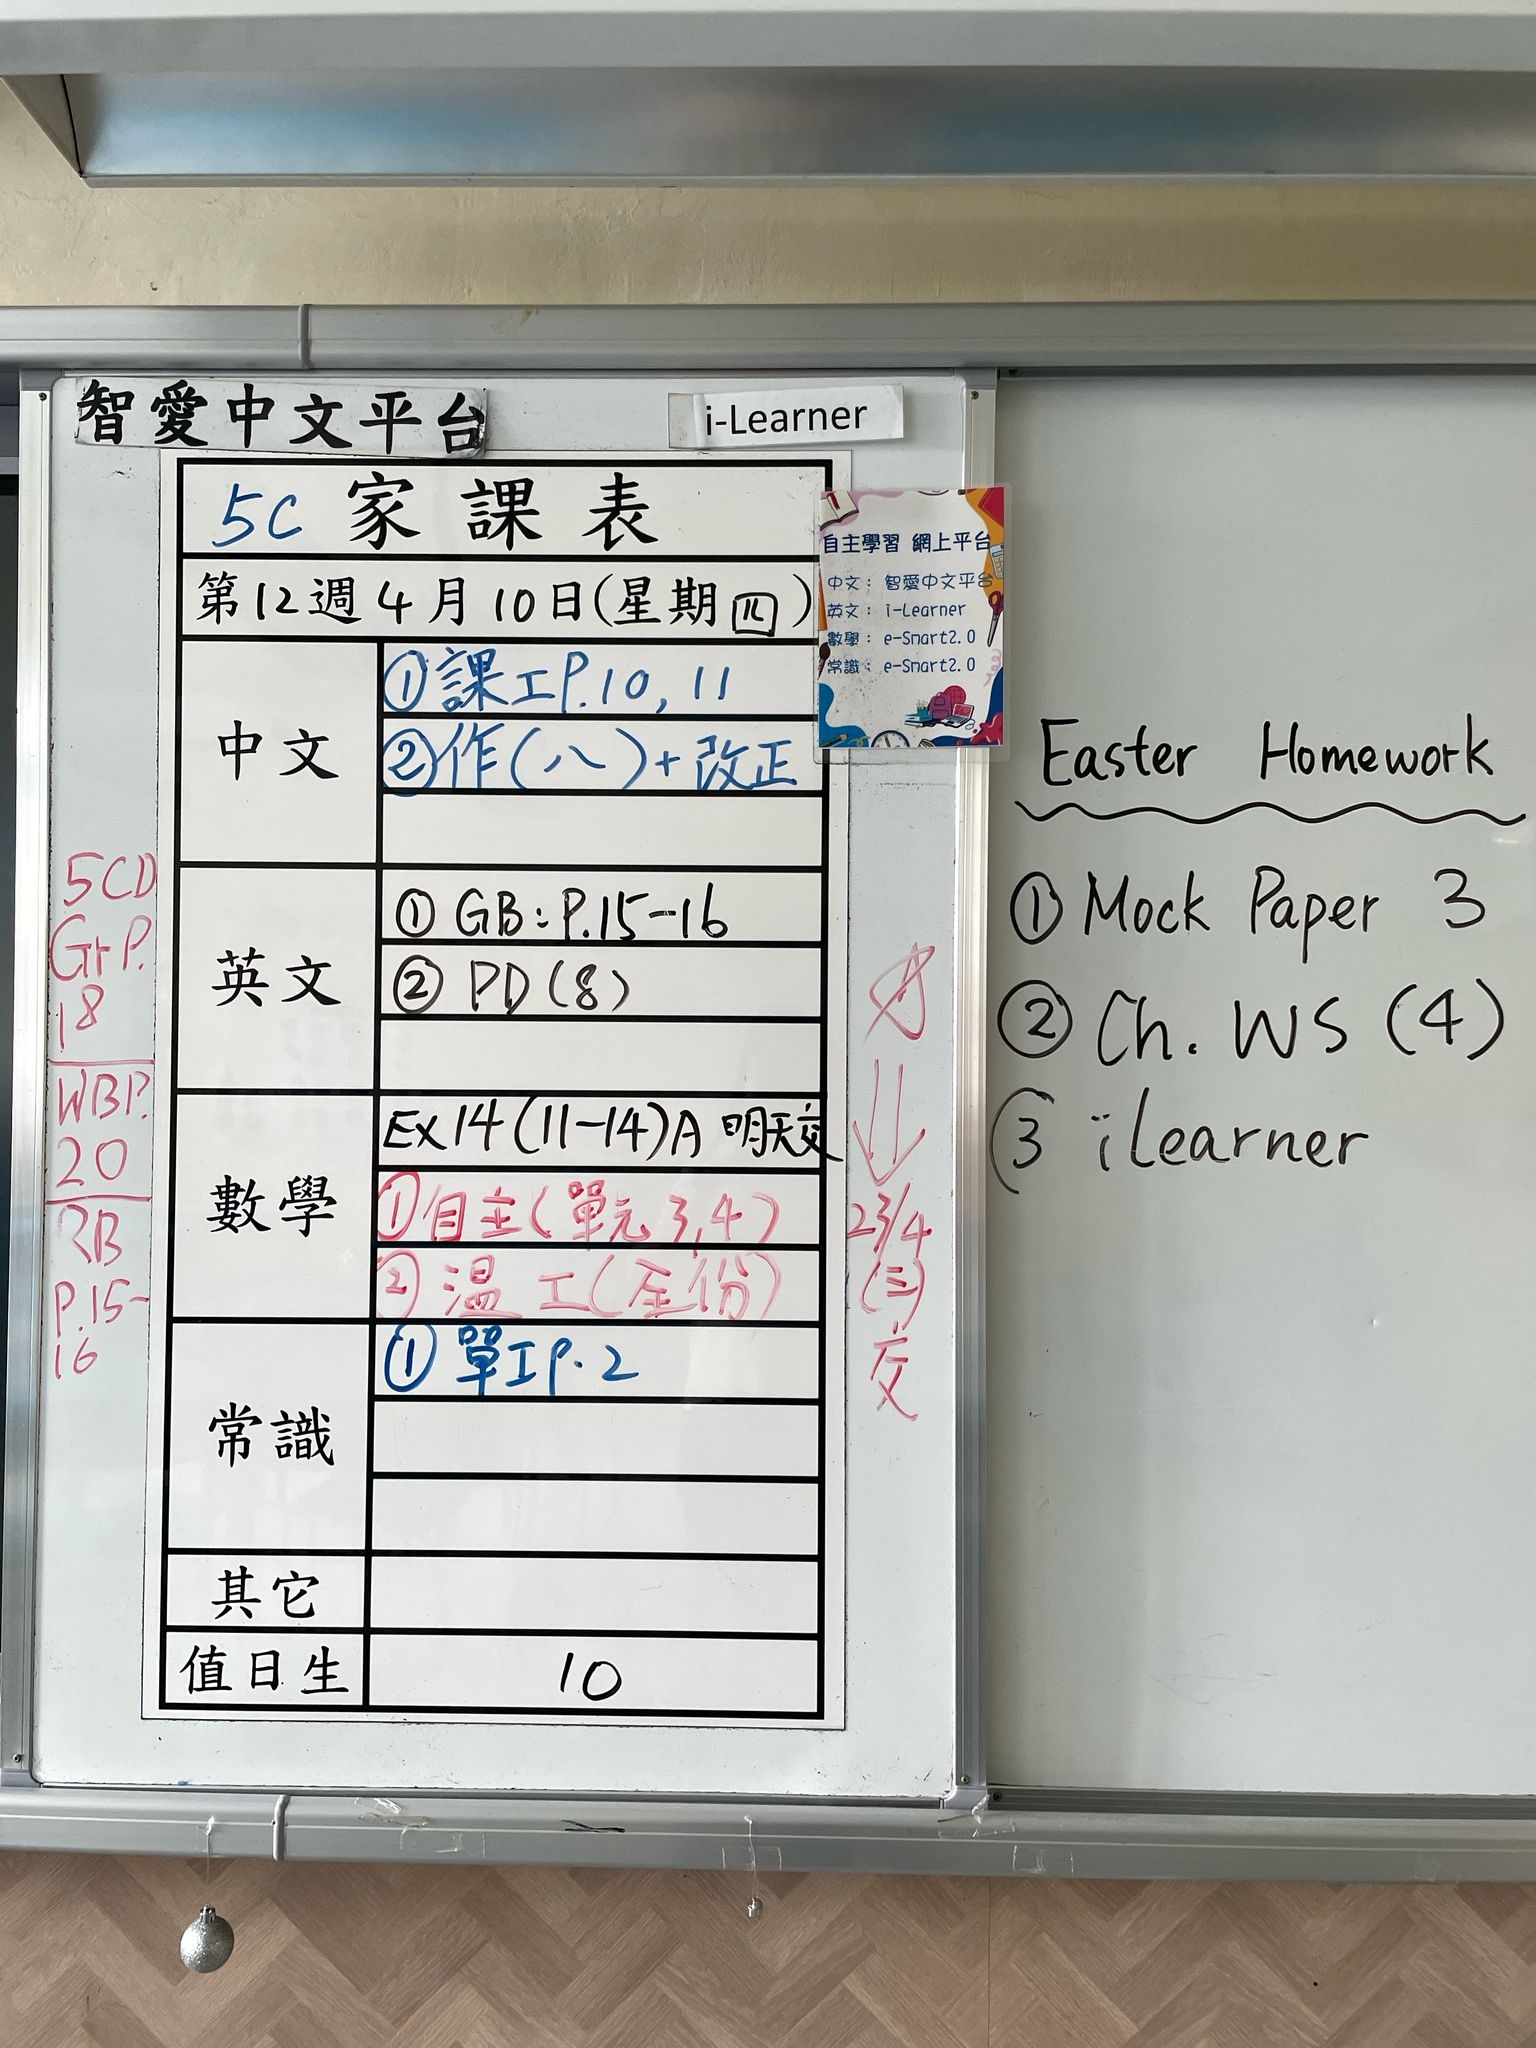 智愛中文平台
i-Learner
5C 家課表
第12週4月10日(星期四)
中文
①課工P.10, 11
②作(八)+改正
英文
① GB: P.15-16
② PD(8)
數學
Ex14(11-14)A 明天交
①自主(單元3,4)
②溫工(全份)
常識
①單工P.2
其它
值日生
10
5CD
GrP.
18
WBP.
20
RB
P.15-
16
23/4
(三)
交
自主學習 網上平台
中文: 智愛中文平台
英文: i-Learner
數學: e-Smart2.0
常識: e-Smart2.0
Easter Homework
① Mock Paper 3
② Ch. WS (4)
③ iLearner